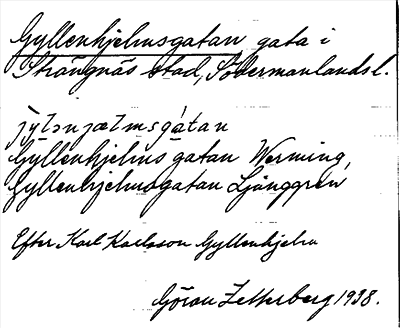 Gyllenhjelmsgatan gata i
Strängnäs stad, Södermanlands l.
jy̆lənjælmsgátan
Gyllenhjelms gatan Werming,
Gyllenhjelmsgatan Ljunggren
Efter Karl Karlsson Gyllenhjelm
Göran Zetterberg 1938.